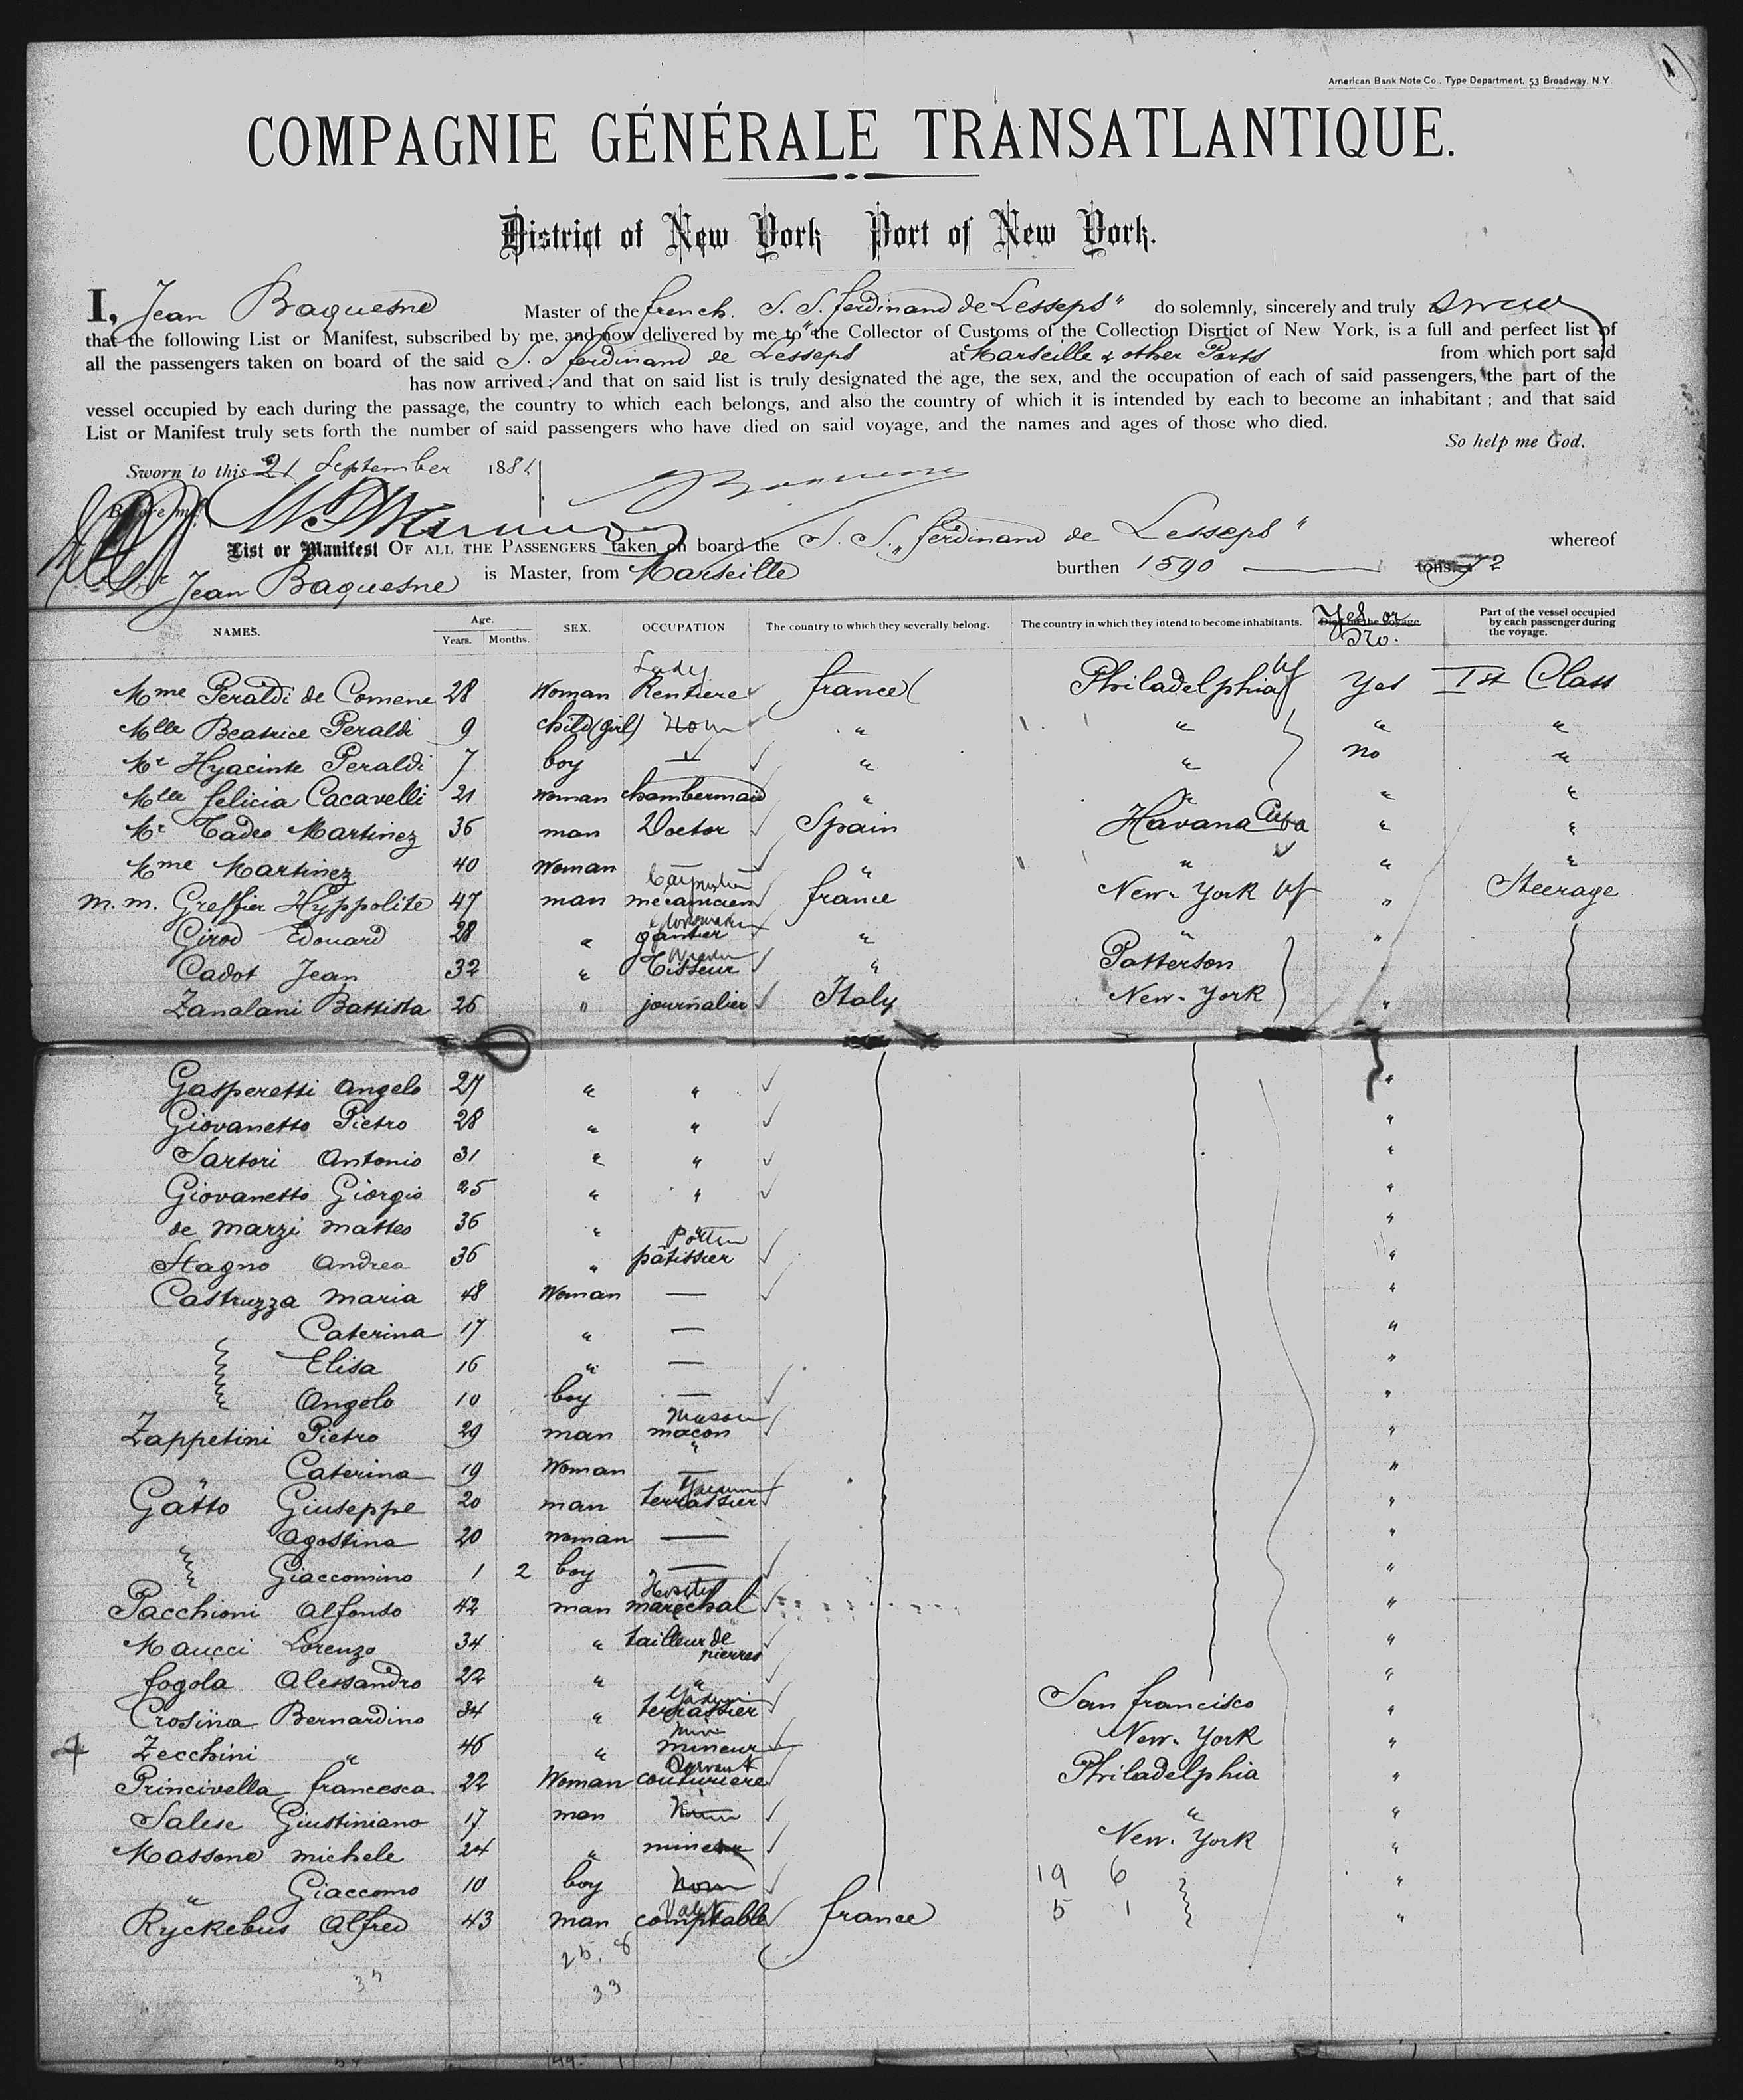 American Bank Note Co., Type Department, 53 Broadway, N.Y.
1
COMPAGNIE GÉNÉRALE TRANSATLANTIQUE.
District of New York Port of New York.
I, Jean Baquesne Master of the french. S. S. ferdinand de Lesseps" do solemnly, sincerely and truly swear
that the following List or Manifest, subscribed by me, and now delivered by me to the Collector of Customs of the Collection Disrtict of New York, is a full and perfect list of
all the passengers taken on board of the said S. S ferdinand de Lesseps at Marseille & other Ports from which port said
has now arrived; and that on said list is truly designated the age, the sex, and the occupation of each of said passengers, the part of the
vessel occupied by each during the passage, the country to which each belongs, and also the country of which it is intended by each to become an inhabitant; and that said
List or Manifest truly sets forth the number of said passengers who have died on said voyage, and the names and ages of those who died.
So help me God.
Sworn to this 21 September 188
Before me,
List or Manifest OF ALL THE PASSENGERS taken on board the S. S. „ ferdinand de Lesseps " whereof
Jean Baquesne is Master, from Marseille burthen 1590 tons.
NAMES. Age. Years. Months. SEX. OCCUPATION The country to which they severally belong. The country in which they intend to become inhabitants. Yes or No. Part of the vessel occupied by each passenger during the voyage.
Mme Peraldi de Comene 28 Woman Lady Rentiere france Philadelphia Yes Ist Class
Mlle Beatrice Peraldi 9 child (girl) " " " "
Mr Hyacinte Peraldi 7 boy " " no "
Mlle felicia Cacavelli 21 woman chambermaid " " " "
Mr Tadeo Martinez 36 man Doctor Spain Havana Cuba " "
Mme Martinez 40 Woman — " " " "
M. M. Greffier Hyppolite 47 man mecanicien france New-York " Steerage
Girod Edouard 28 " gantier " " "
Cadot Jean 32 " Tisseur " Patterson
Zanalani Battista 26 " journalier Italy New-York "
Gasperetti Angelo 27 " " "
Giovanetto Pietro 28 " " "
Sartori Antonio 31 " " "
Giovanetto Giorgio 25 " " "
de Marzi Matteo 36 " " "
Stagno Andrea 36 " pâtissier "
Castruzza Maria 48 Woman — "
Caterina 17 " — "
Elisa 16 " — "
Angelo 10 boy — "
Zappetini Pietro 29 man Mason macon "
" Caterina 19 Woman — "
Gatto Giuseppe 20 man terrassier "
Agostina 20 woman — "
Giaccomino 1 2 boy — "
Pacchioni Alfonso 42 man marechal "
Maucci Lorenzo 34 " tailleur de pierres "
fogola Alessandro 22 " " "
Crosina Bernardino 34 " terrassier San francisco "
Zecchini " 46 " mineur New-York "
Princivella francesca 22 Woman Servant couturiere Philadelphia "
Salese Giustiniano 17 man " "
Massone Michele 24 " mineur New-York "
" Giaccomo 10 boy 19 6 "
Ryckebus Alfred 43 man comptable france 5 1 "
25. 8
33